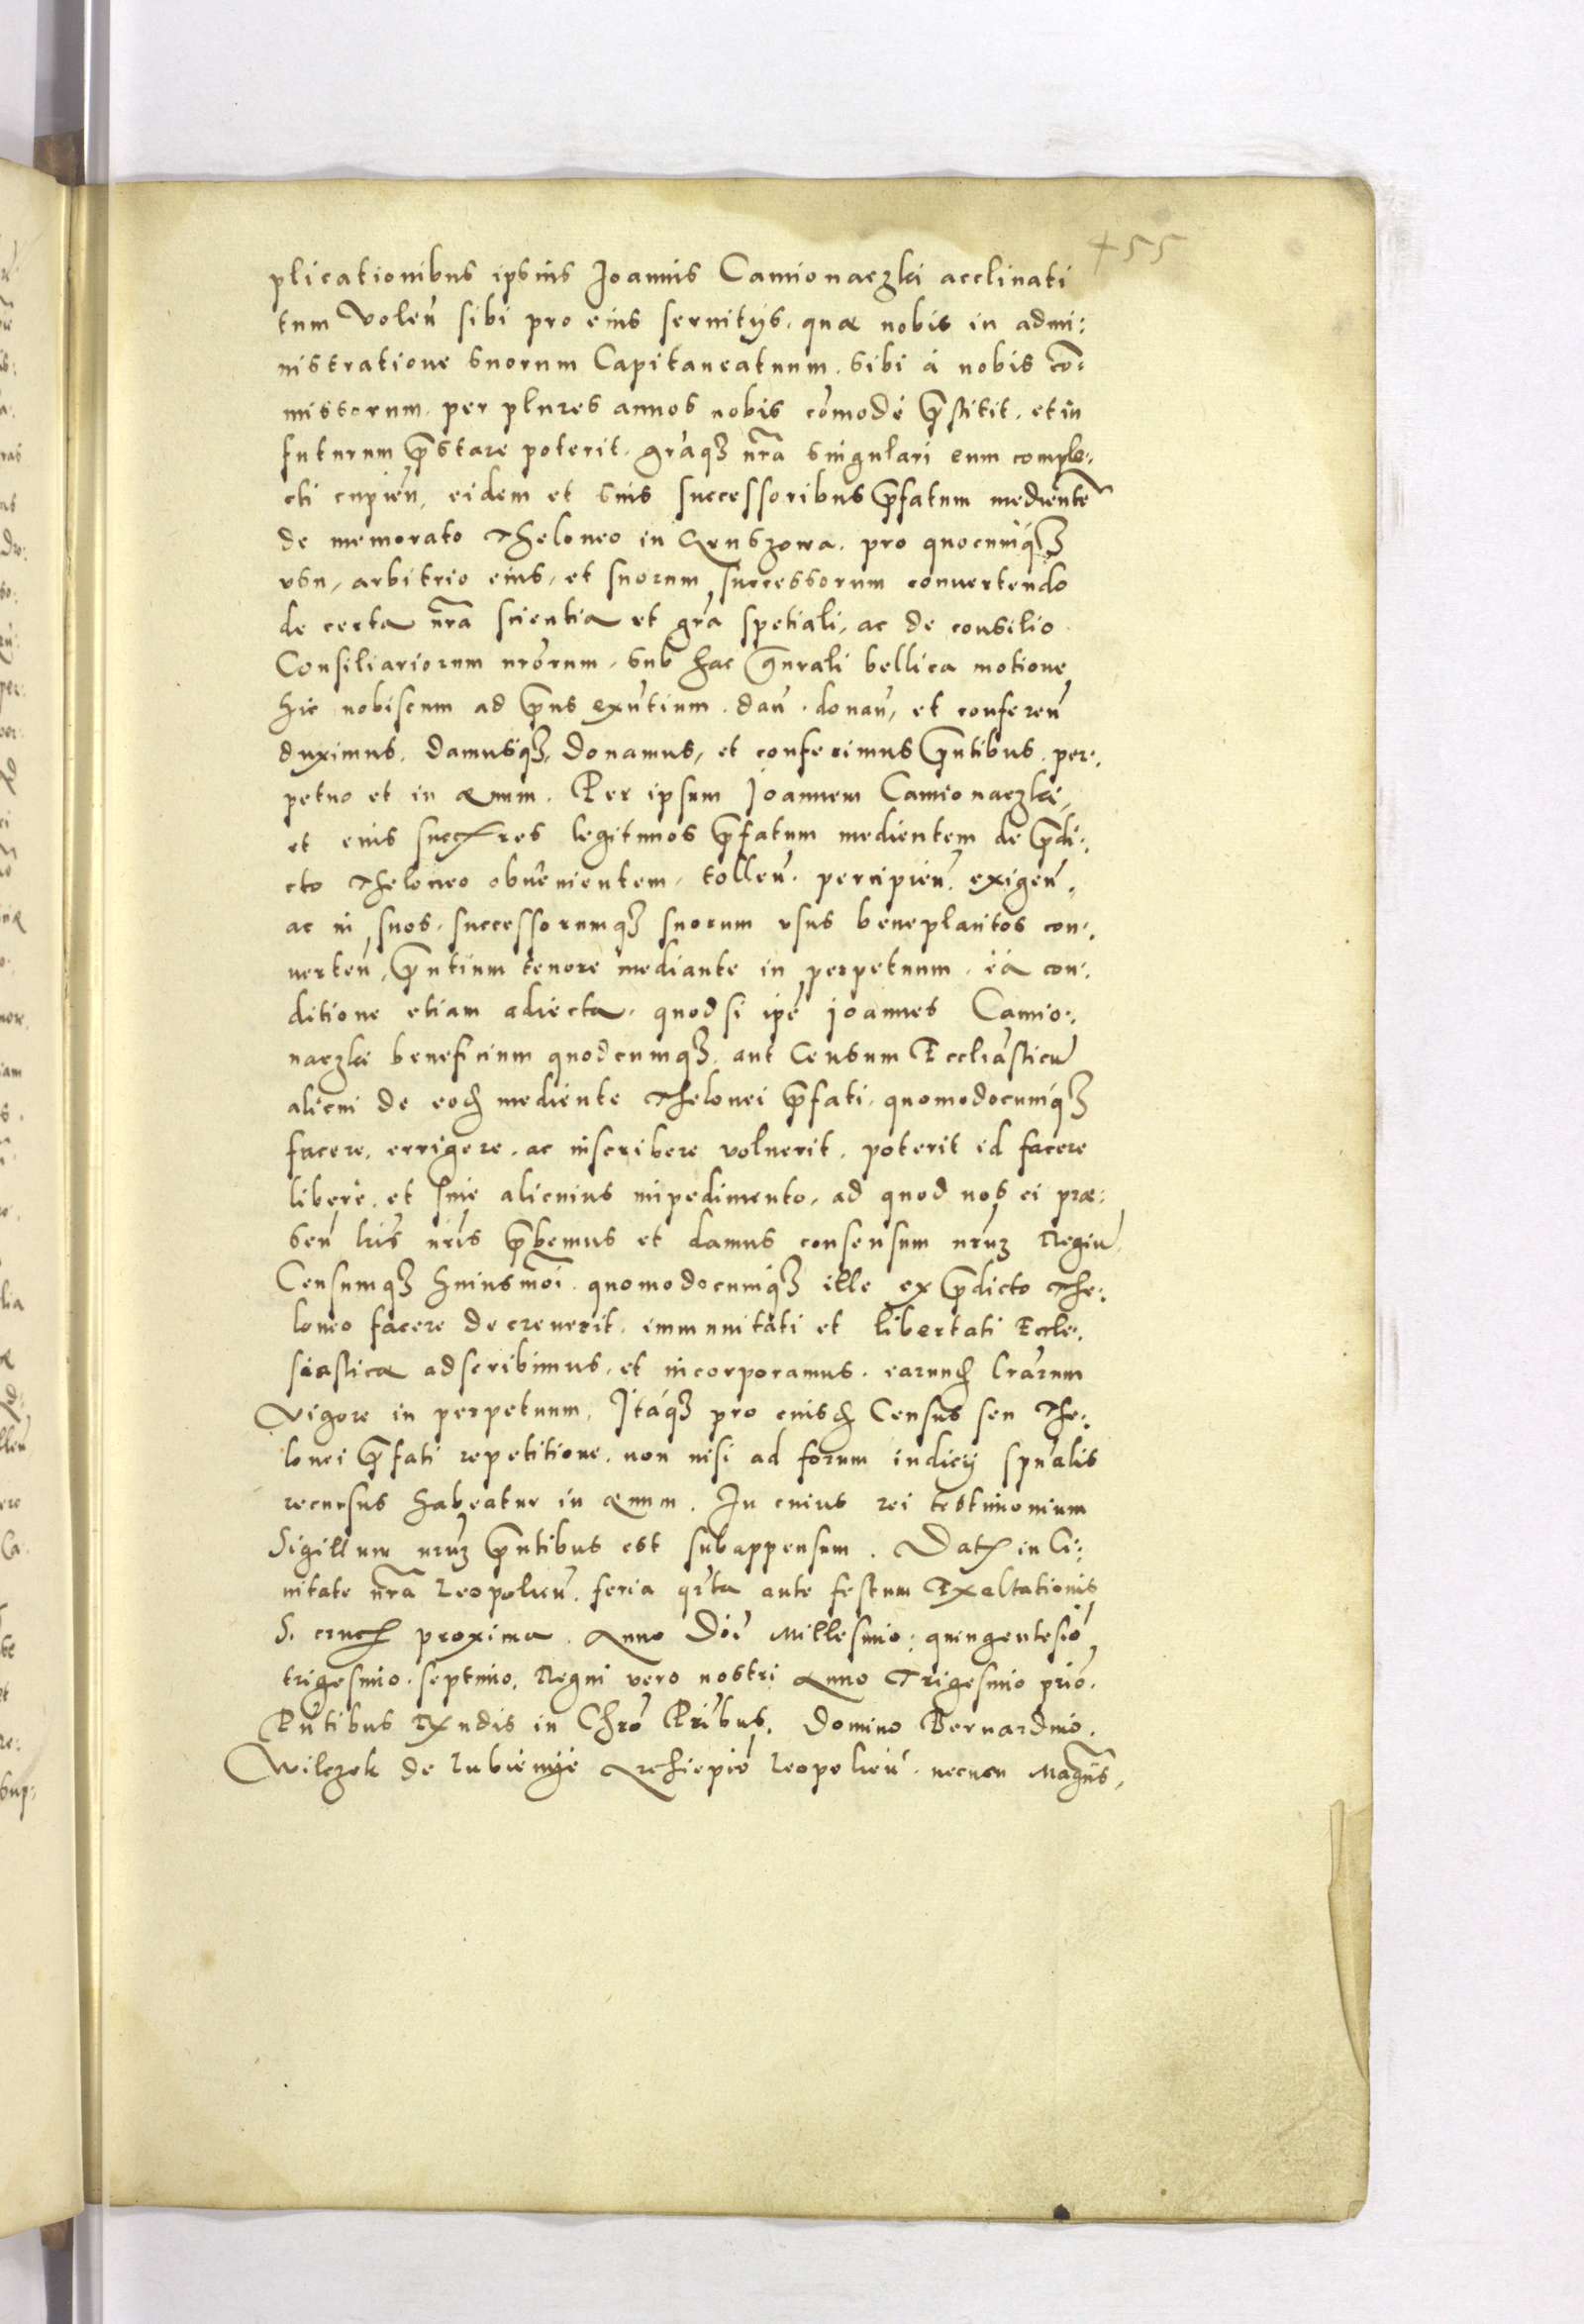 455
plicationibus ipsius Joannis Camionaczki acclinati
tum volen̄ sibi pro eius seruitijs, quæ nobis in admi:
nistratione suorum Capitaneatuum, sibi à nobis cō:
missorum, per plures annos nobis cōmodè p̄stitit, et in
futurum p̄stare poterit, gr̄aq3 nr̄a singulari eum comple:
cti cupien̄, eidem et suis successoribus p̄fatum medientē
de memorato Theloneo in Gruszowa, pro quocunq3
vsu, arbitrio eius, et suorum successorum conuertendo
de certa nr̄a scientia et gr̄a spetiali, ac de consilio
Consiliariorum nrōrum, sub hac gn̄rali bellica motione
hic nobiscum ad p̄ns exn̄tium, dan̄, donan̄, et conferen̄
duximus, damusq3, donamus, et conferimus p̄ntibus, per:
petuo et in æuum. Per ipsum Joannem Camionaczki,
et eius succ̄res legitimos p̄fatum medientem de p̄di:
cto Theloneo obuenientem, tollen̄, percipien̄, exigen̄,
ac in suos, successorumq3 suorum vsus beneplacitos con:
uerten̄, p̄ntium tenore mediante in perpetuum, eà con:
ditione etiam adiecta, quod si ipē Joannes Camio:
naczki beneficium quodcumq3, aut Censum Eccliāsticū
alicui de eod̄ mediente Thelonei p̄fati, quomodocunq3
facere, errigere, ac inscribere voluerit, poterit id facere
liberè, et sine alicuius impedimento, ad quod nos ei præ:
sen̄ lr̄is nr̄is p̄bemus et damus consensum nrūm Regiū,
Censumq3 huiusmōi quomodocunq3 ille ex p̄dicto The:
loneo facere decreuerit, immunitati et libertati Eccle:
siasticæ adscribimus, et incorporamus, earund̄ lrārum
vigore in perpetuum, Itàq3 pro eiusd̄ Census seu The:
lonei p̄fati repetitione, non nisi ad forum iudicij spūalis
recursus habeatur in æuum. In cuius rei testimonium
Sigillum nrūm p̄ntibus est subappensum. Dat̄ in Ci:
uitate nr̄a Leopolien̄, feria qr̄ta ante festum Exaltationis
S. cruc̄ proxima. Anno Dōi Millesimo, quingentesiō
trigesimo septimo, Regni vero nostri Anno Trigesimo priō.
Pn̄tibus Rxndis in Chrō Pr̄ibus, Domino Bernardino
Wilczek de Lubienye Archiepiō Leopolien̄, necnon Magn̄is,